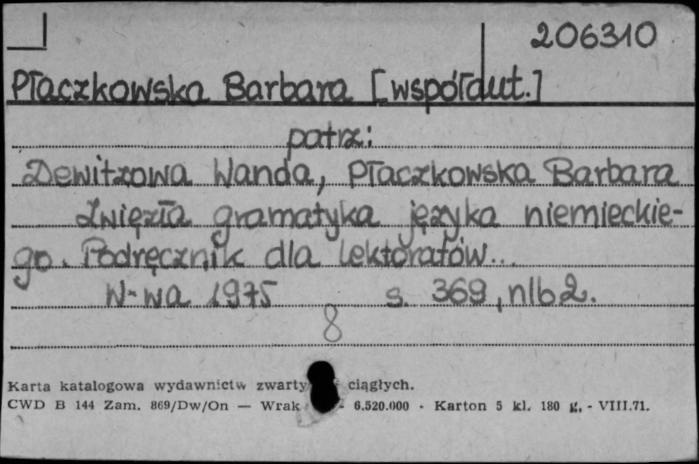 206310
Płaczkowska Barbara [współaut.]
patrz:
Dewitzowa Wanda, Płaczkowska Barbara
Zwięzła gramatyka języka niemieckie-
go. Podręcznik dla lektoratów...
W-wa 1975 s. 369, nlb 2.
8
Karta katalogowa wydawnictw zwarty ciągłych.
CWD B 144 Zam. 869/Dw/On — Wrak - 6.520.000 - Karton 5 kl. 180 g. - VIII.71.